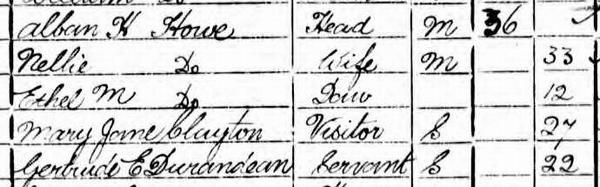 Alban H Howe Head M 36
Nellie Do Wife M 33
Ethel M Do Dau 12
Mary Jane Clayton Visitor S 27
Gertrude E Durandean Servant S 22